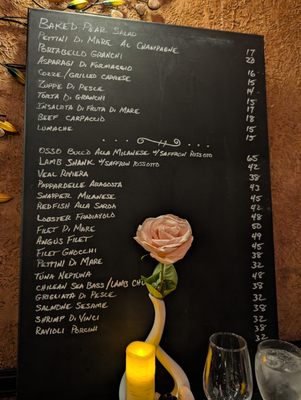 BAKED PEAR SALAD 17
PETTINI DI MARE AL CHAMPAGNE 20
PORTABELLO GRANCHI 16
ASPARAGI DI FORMAGGIO 15
COZZE/GRILLED CAPRESE 14
ZUPPE DI PESCE 15
TORTA DI GRANCHI 17
INSALOTA DI FRUTA DI MARE 18
BEEF CARPACCIO 15
LUMACHE 15
OSSO BUCCO ALLA MILANESE W/SAFFRON RISSOTO 65
LAMB SHANK W/SAFFRON RISSOTO 42
VEAL RIVIERA 38
PAPPARDELLE ARAGOSTA 43
SNAPPER MILANESE 45
REDFISH ALLA SARDA 42
LOBSTER FRADIAVOLO 48
FILET DI MARE 50
ANGUS FILET 49
FILET GHOCCHI 45
PETTINI DI MARE 38
TUNA NEPTUNA 32
CHILEAN SEA BASS/LAMB CH 48
GRIGLIATA DI PESCE 38
SALMONE SESAME 32
SHRIMP DI VINCI 32
RAVIOLI PORCINI 32